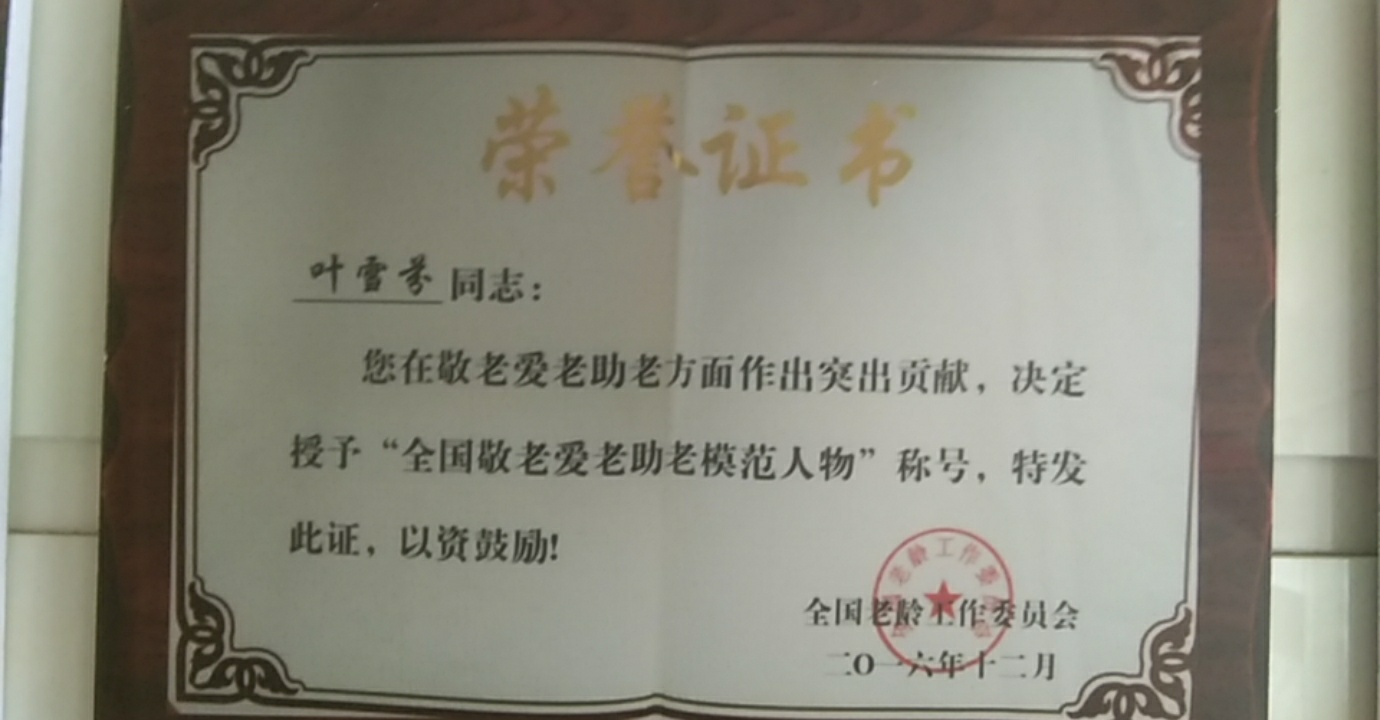 荣誉证书
叶雪芬同志：
您在敬老爱老助老方面作出突出贡献，决定
授予“全国敬老爱老助老模范人物”称号，特发
此证，以资鼓励！
全国老龄工作委员会
二〇一六年十二月